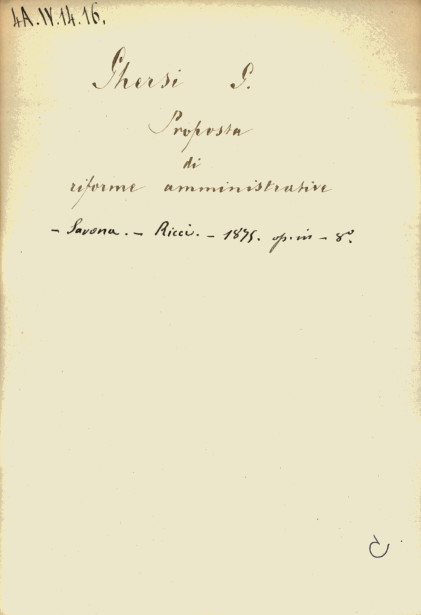 4A.IV.14.16.
Ghersi G.
Proposta
di
riforme amministrative
- Savona. - Ricci. - 1875. op. in - 8°.